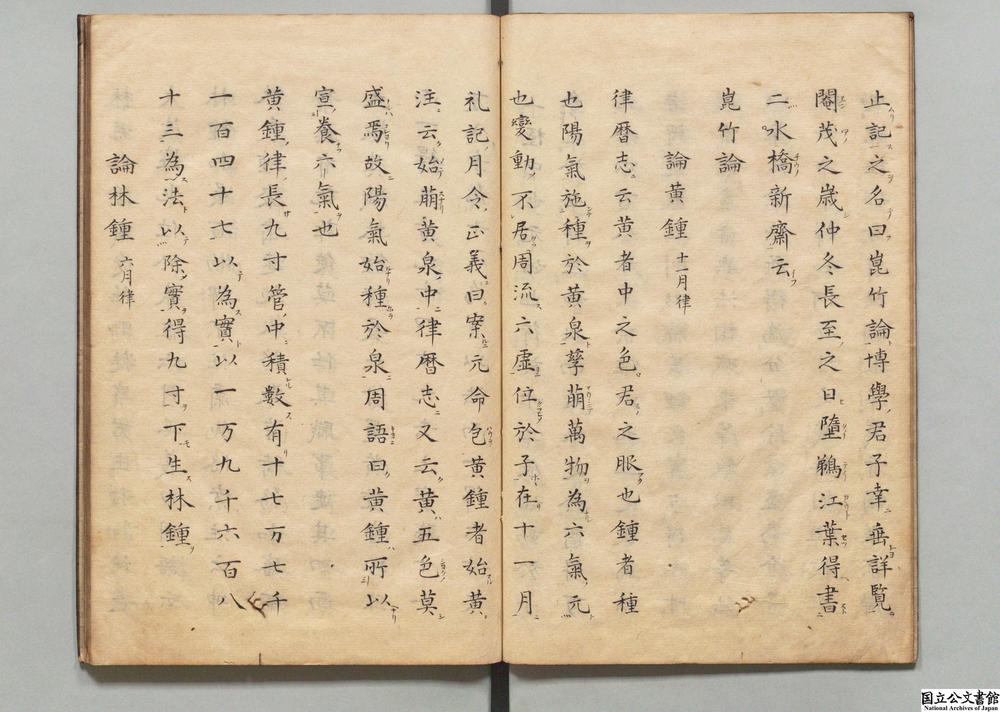 止記之名曰崑竹論博學君子幸垂詳覧
閹茂之歳仲冬長至之日墮鵜江葉得書
二水橋新齋云
崑竹論
論黄鍾 十一月律
律暦志云黄者中之色君之服也鍾者種
也陽氣施種於黄泉孳萌萬物為六氣元
也變動不居周流六虚位於子在十一月
礼記月令正義曰案元命包黄鍾者始黄
注云始萠黄泉中律暦志又云黄五色莫
盛焉故陽氣始種於泉周語曰黄鍾所以
宣養六氣也
黄鍾律長九寸管中積數有十七万七千
一百四十七以為實以一万九千六百八
十三為法以除實得九寸下生林鍾
論林鍾 六月律
国立公文書館
National Archives of Japan